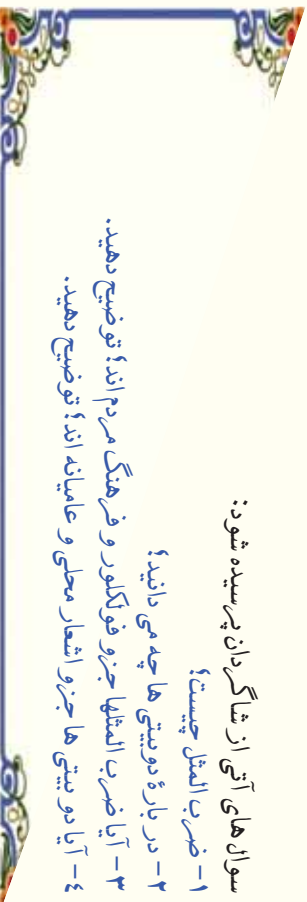 سوال های آتی از شاگردان پرسیده شود:
۱- ضرب المثل چیست؟
۲- در بارهٔ دوبیتی ها چه می دانید؟
۳- آیا ضرب المثلها جزو فولکلور و فرهنگ مردم اند؟ توضیح دهید.
۴- آیا دو بیتی ها جزو اشعار محلی و عامیانه اند؟ توضیح دهید.